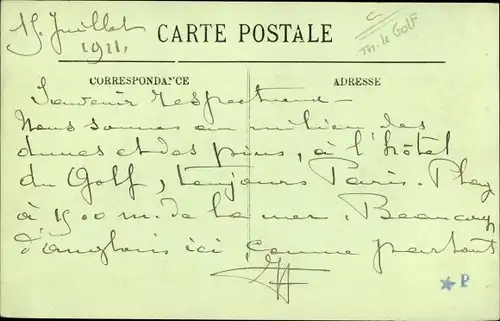 15 Juillet
1921.
CARTE POSTALE
Th. le Golf
CORRESPONDANCE
ADRESSE
Souvenir respectueux –
Nous sommes au milieu des
dunes et des pins, à l'hôtel
du Golf, toujours Paris-Plage
à 1500 m. de la mer. Beaucoup
d'anglais ici, comme partout
P